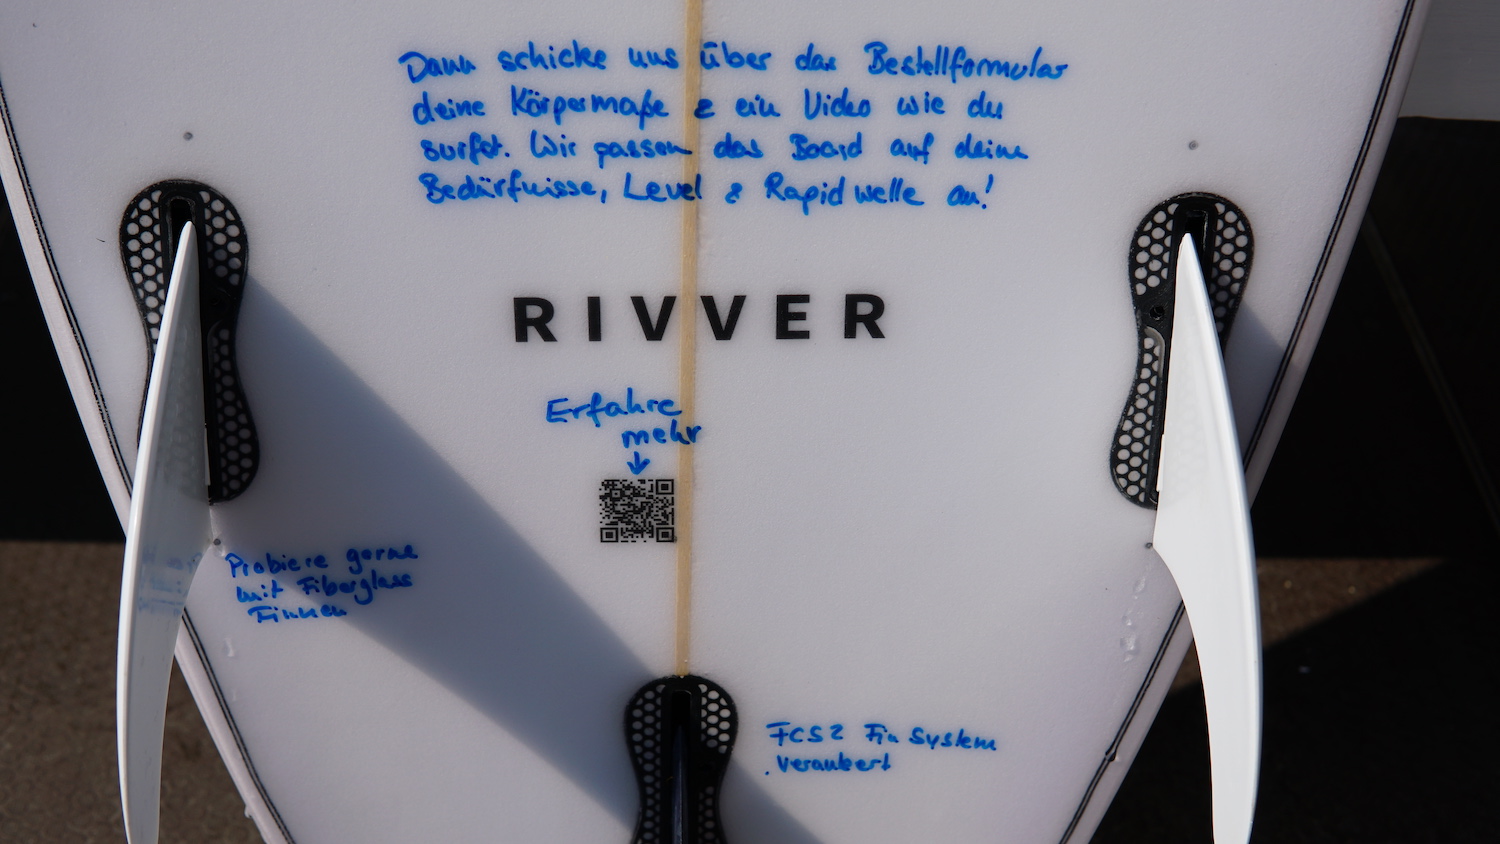 Dann schicke uns über das Bestellformular
deine Körpermaße & ein Video wie du
surfst. Wir passen das Board auf deine
Bedürfnisse, Level & Rapidwelle an!
RIVVER
Erfahre
mehr
Probiere gerne
mit Fiberglass
Finnen
FCS2 Fin System
verankert